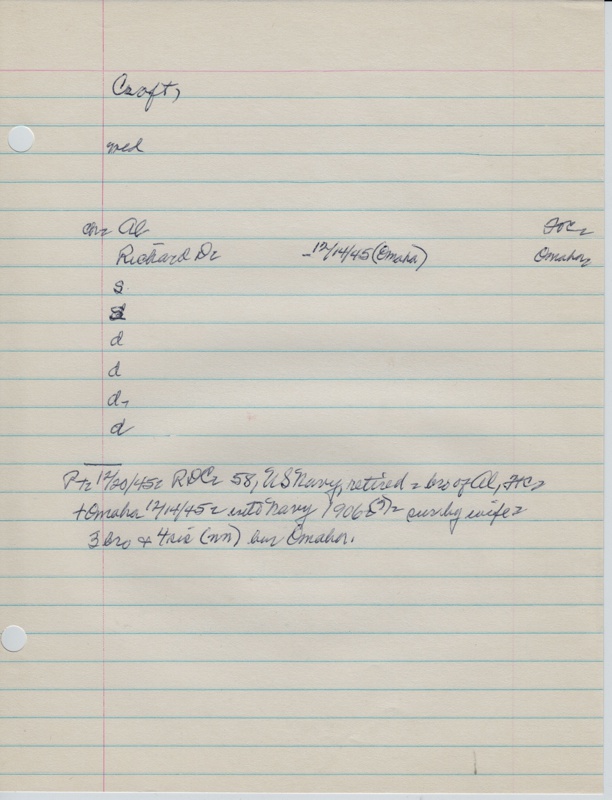 Croft,
med
Al
Richard D. -12/14/45 (Omaha) Omaha
s
s
d
d
d,
d
12/20/45 RDC 58, US Navy, retired = bro of Al,
+ Omaha 12/14/45 = into Navy 1906 (?) = sur by wife =
3 bro + 4 sis (nn) bur Omaha.